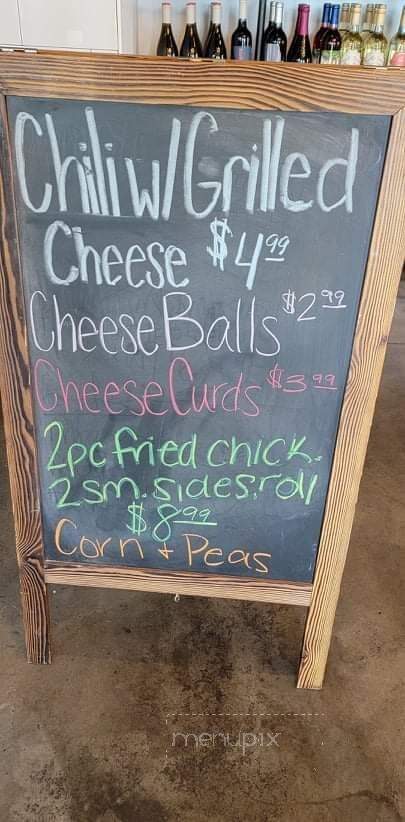 Chili w/ Grilled
Cheese $4.99
Cheese Balls $2.99
Cheese Curds $3.99
2pc fried chick.
2 sm. sides, roll
$8.99
Corn + Peas
menupix